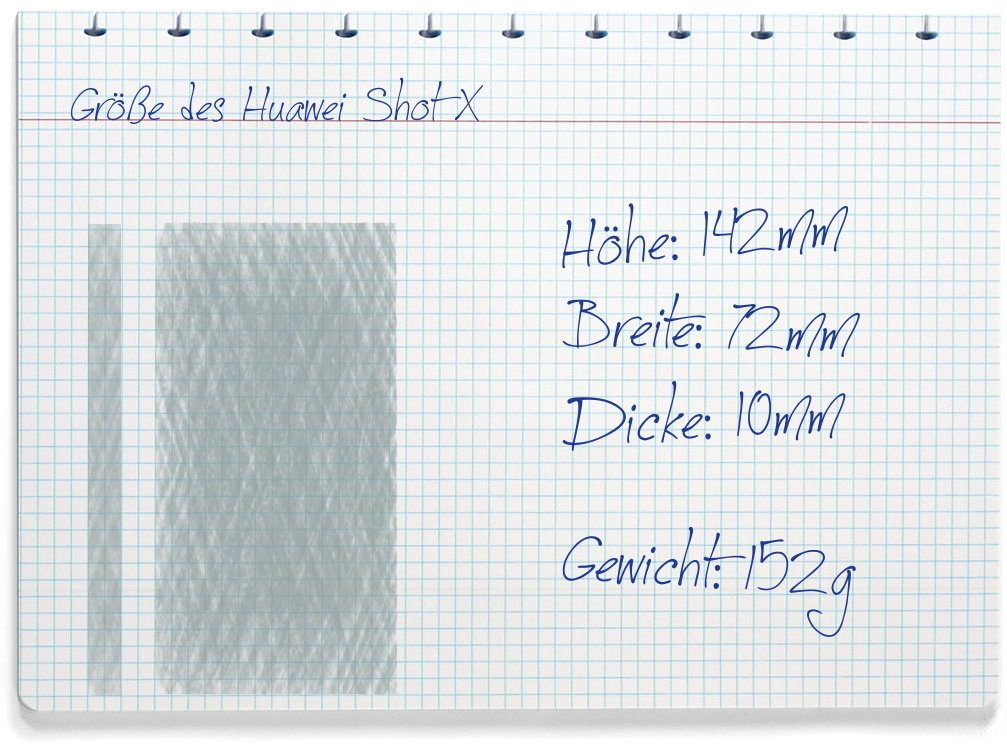 Größe des Huawei Shot X
Höhe: 142mm
Breite: 72mm
Dicke: 10mm
Gewicht: 152g